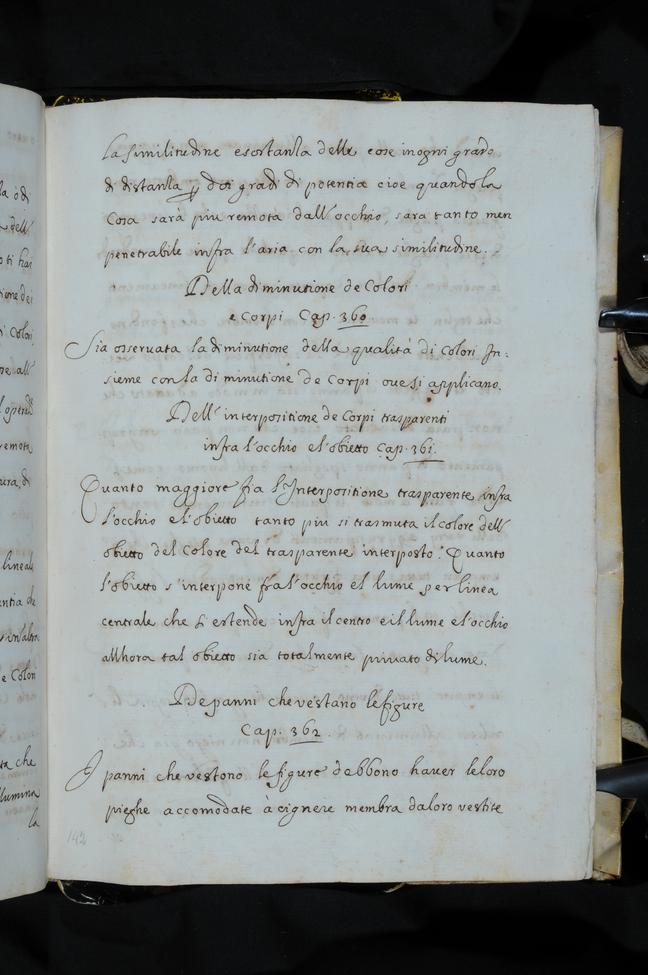 la similitudine e sostanza delle cose in ogni grado
di distanza p doi gradi di potentia cioe quando la
Cosa sarà piu remota dall'occhio, sara tanto men
penetrabile infra l'aria con la sua similitudine.
Della diminutione de Colori
e Corpi Cap. 360
Sia osservata la diminutione della qualità di Colori In=
sieme con la diminutione de Corpi oue si applicano.
Dell'interpositione de Corpi trasparenti
infra l'occhio e l'obietto Cap. 361.
Quanto maggiore fia l'Interpositione trasparente infra
l'occhio e l'obietto tanto piu si trasmuta il colore dell'
obietto del Colore del trasparente interposto. Quanto
l'obietto s'interpone fra l'occhio el lume per linea
centrale che s'estende infra il centro e il lume e l'occhio
all'hora tal obietto sia totalmente privato di lume.
De panni che vestano le figure
Cap. 362.
I panni che vestono le figure debbono haver le loro
pieghe accomodate a cignere membra da loro vestite
142
la ò di
dell'
ti hai
tione dei
i Colori
dall'
l operad
remota
ura, di
lineale
entia che
e Colori
ta che
llumina
la